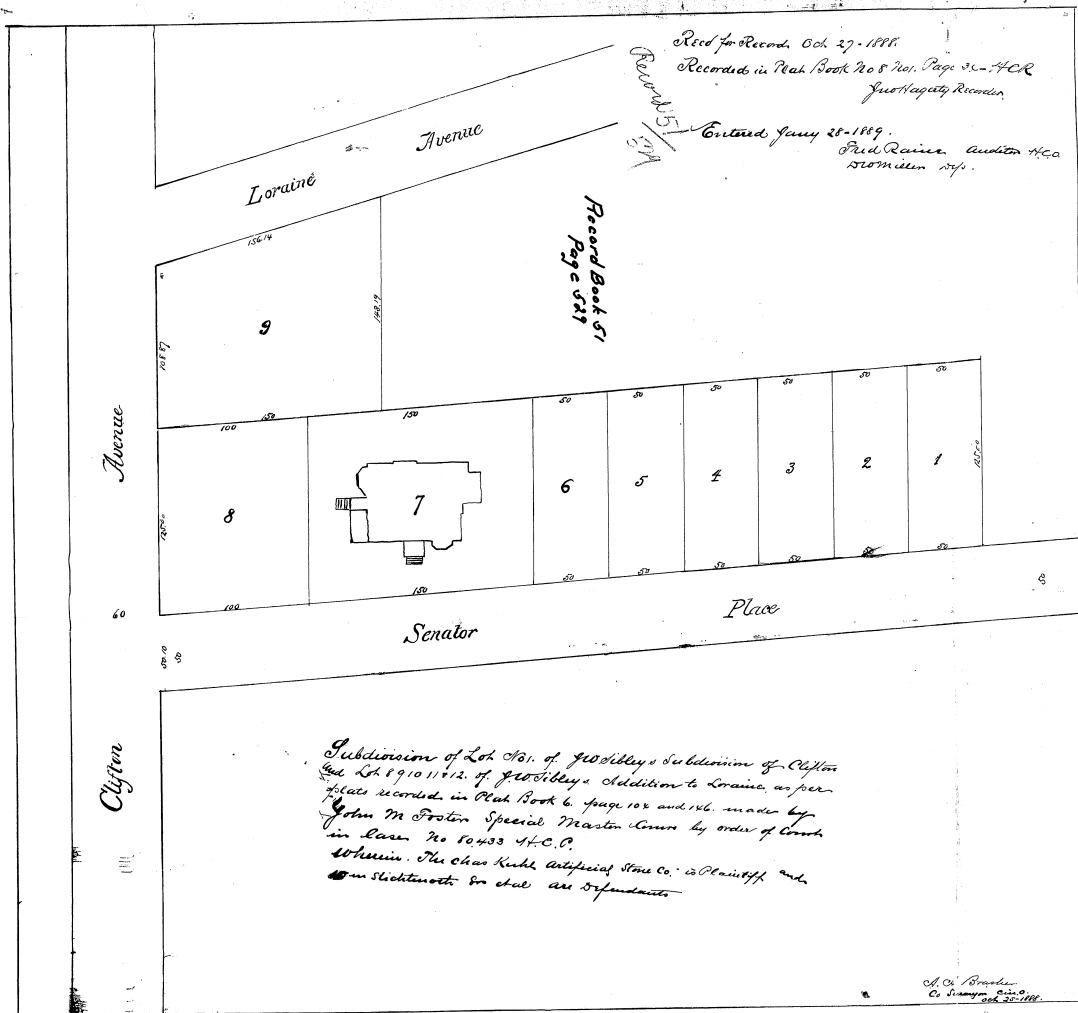 Recd for Record Oct 27-1888.
Recorded in Plat Book No 8 No1. Page 3 -H C R
Jno Hagerty Recorder.
Record 51/529
Entered Jany 28-1889.
Fred Raine Auditor H.C.O.
Dep.
Avenue
Loraine
Record Book 51
Page 529
156.14
148.19
108.87
9
150
150
100
50
50
50
50
50
50
125.00
8
7
6
5
4
3
2
1
125.00
100
150
50
50
50
50
50
50
Avenue
60
Clifton
Senator
Place
50.10
50
Subdivision of Lot No1. of J W Sibleys Subdivision of Clifton
and Lot 8 9 10 11 & 12. of J W Sibleys Addition to Loraine, as per
plats recorded in Plat Book 6. page 104 and 146. made by
John M Foster Special Master Comr by order of Court
in Case No 80433 H.C.C.
wherein. The Chas Kuhl Artificial Stone Co. is Plaintiff and
Wm et al are Defendants
A. C. Brasher
Co Surveyor Cin.O.
Oct 25-1888.